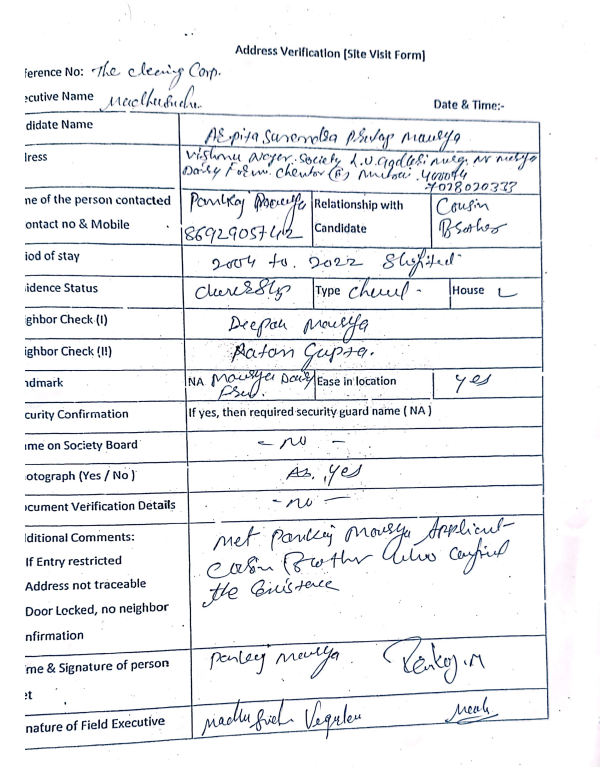 Address Verification [Site Visit Form]
ference No: The cleeing Corp.
ecutive Name Madhusudn.
Date & Time:-
didate Name
Maurya
ress
Vishnu Nagar Society
Dairy Form. 400074
7028020333
ne of the person contacted
ontact no & Mobile
Pankaj Maurya
8692905742
Relationship with
Candidate
Cousin
Brother
iod of stay
2004 to. 2022 Shifited-
idence Status
Type
House
ghbor Check (I)
Deepak Maurya
ighbor Check (II)
Ratan Gupta.
ndmark
NA Maurya Dairy
Ease in location
yes
curity Confirmation
If yes, then required security guard name ( NA )
me on Society Board
- no -
otograph (Yes / No )
As, yes
ocument Verification Details
- no -
ditional Comments:
If Entry restricted
Address not traceable
Door Locked, no neighbor
nfirmation
met Pankaj Maurya Applicant-
Cosin Brother who confined
the
me & Signature of person
et
Pankaj Maurya. Pankaj.M
nature of Field Executive